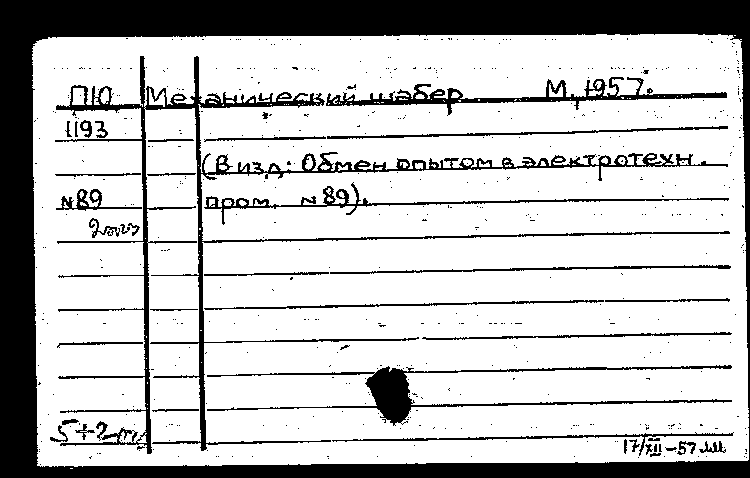 П10 Механический шабер М, 1957.
1193
(В изд: Обмен опытом в электротехн.
N89 пром. N89).
2
5+2
17/XII-57